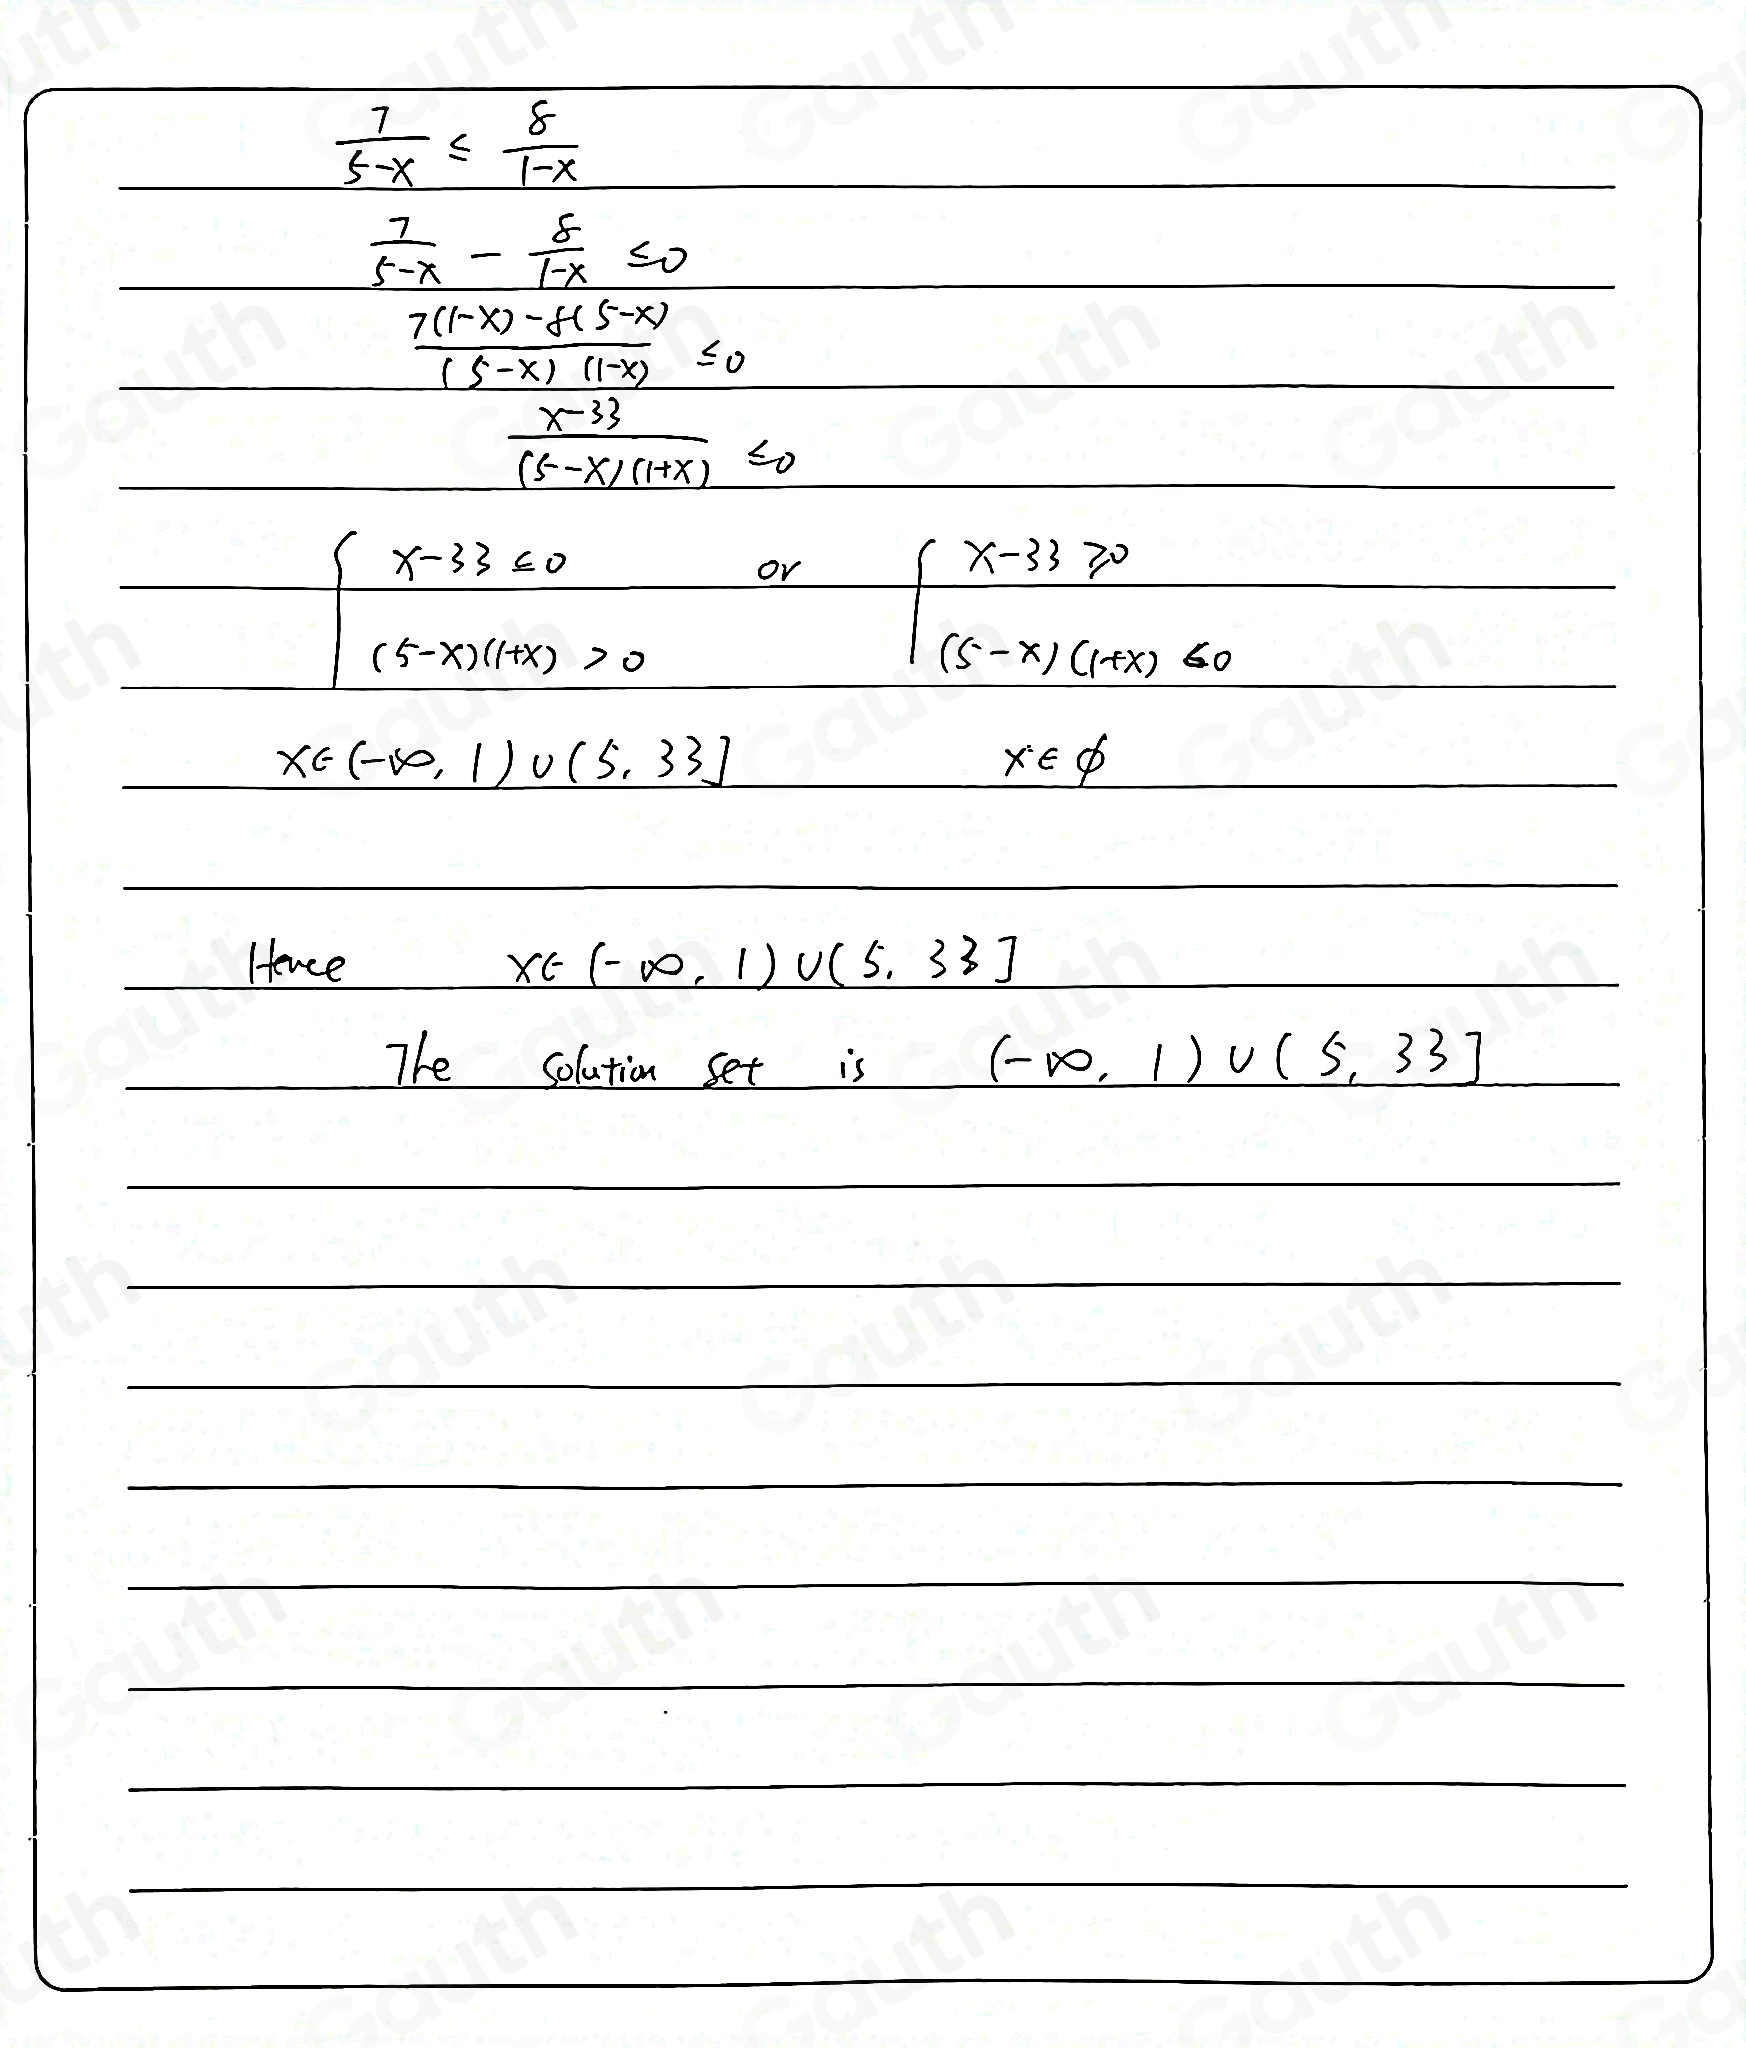 7/(5-x) ≤ 8/(1-x)
7/(5-x) - 8/(1-x) ≤0
(7(1-x)-8(5-x))/((5-x)(1-x)) ≤0
(x-33)/((5-x)(1+x)) ≤0
{ x-33≤0 or { x-33≥0
(5-x)(1+x) >0 (5-x)(1+x) ≤0
x∈(-∞, 1)∪(5, 33] x∈∅
Hence x∈(-∞, 1)∪(5, 33]
The solution set is (-∞, 1)∪(5, 33]
Gauth